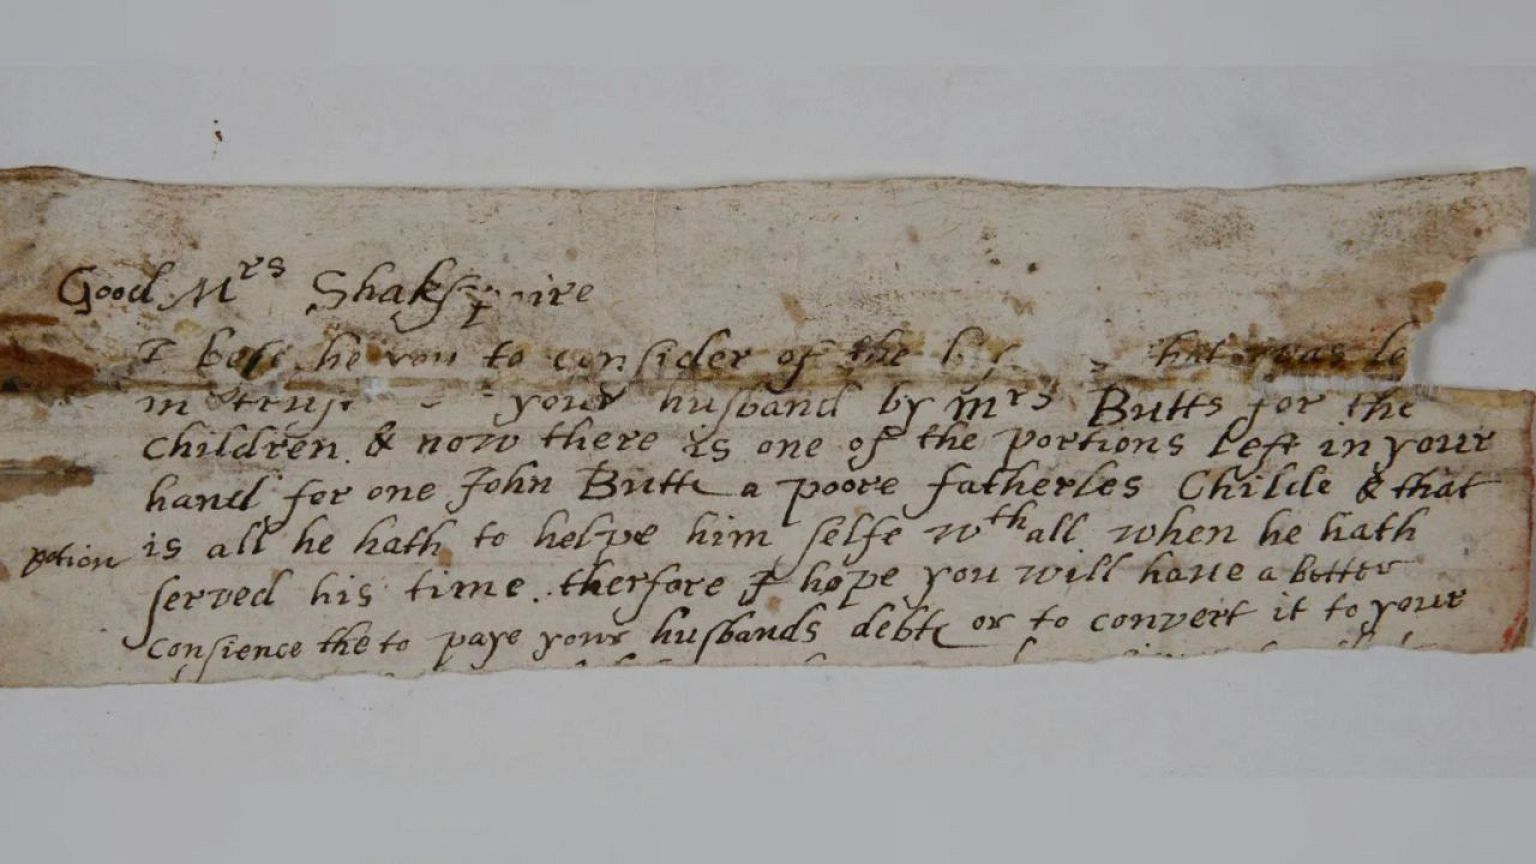 Good Mrs Shakspaire
I bese he you to consider of the that was le
in trust your husband by Mrs Butts for the
Children & now there is one of the portions left in your
hand for one John Butte a poore fatherles Childe & that
potion is all he hath to helpe him selfe wth all when he hath
served his time. therfore I hope you will haue a better
Consience the to paye your husbands debte or to convert it to your